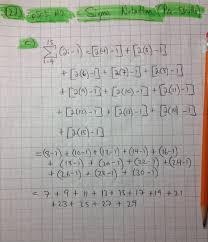 Sigma Notation (Pre-Study)
c) 15 Σ i=4 (2i-1) = [2(4)-1] + [2(5)-1]
+ [2(6)-1] + [2(7)-1] + [2(8)-1]
+ [2(9)-1] + [2(10)-1] + [2(11)-1]
+ [2(12)-1] + [2(13)-1] + [2(14)-1]
+ [2(15)-1]
= (8-1) + (10-1) + (12-1) + (14-1) + (16-1)
+ (18-1) + (20-1) + (22-1) + (24-1)
+ (26-1) + (28-1) + (30-1)
= 7 + 9 + 11 + 13 + 15 + 17 + 19 + 21
+ 23 + 25 + 27 + 29